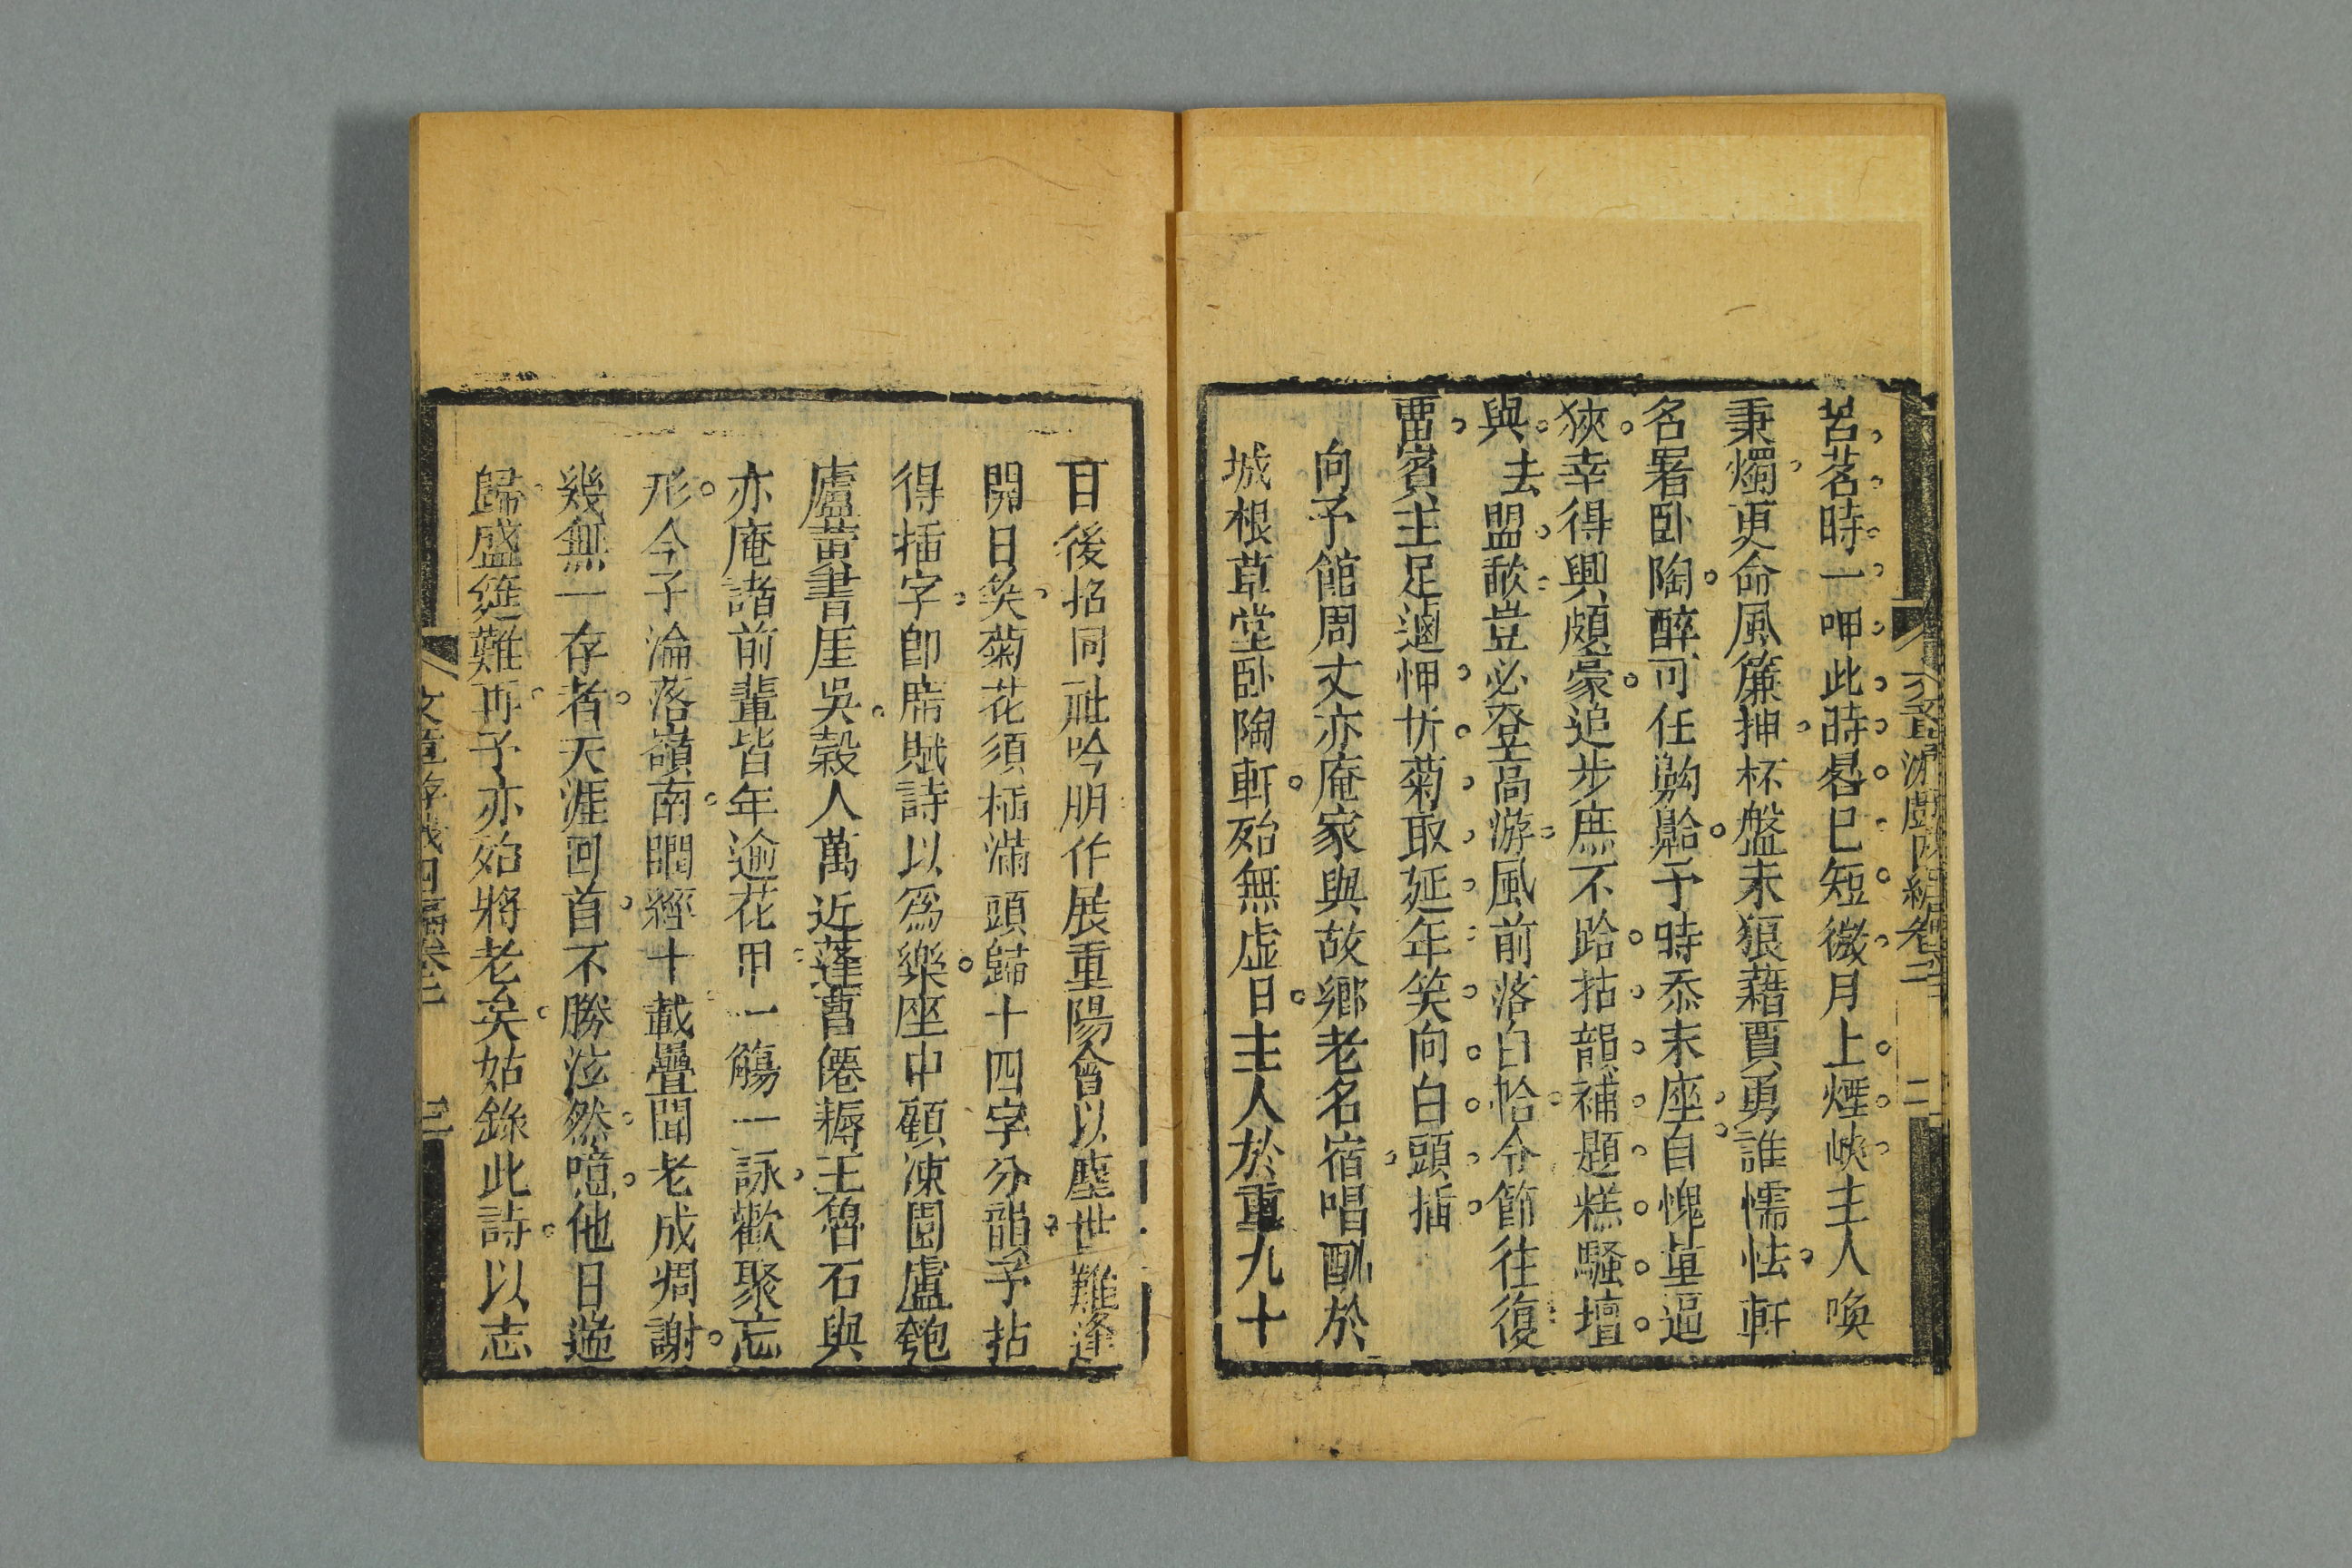 文章游戲四編卷二
二
苦茗時一呷此時晷巳短微月上煙峽主人喚
秉燭更命風簾押杯盤未狼藉賈勇誰懦怯軒
名署卧陶醉可任齁䶎予時忝末座自愧堇逼
狹幸得興頗豪追步庶不跲拈韻補題糕騷壇
與去盟歃豈必登高游風前落白帢令節往復
畱賓主足適忺忻菊取延年笑向白頭插
向予館周丈亦庵家與故鄉老名宿唱酬於
城根草堂卧陶軒殆無虛日主人於重九十
日後招同社吟朋作展重陽會以塵世難逢
開口笑菊花須插滿頭歸十四字分韻予拈
得插字卽席賦詩以爲樂座中顧涑園盧匏
廬黃書厓吳榖人萬近蓬曹僊耨王魯石與
亦庵諸前輩皆年逾花甲一觴一詠歡聚忘
形今予淪落嶺南瞤經十載疊聞老成凋謝
幾無一存者天涯回首不勝泫然噫他日遄
歸盛筵難再予亦殆將老矣姑錄此詩以志
文章游戲四編卷二
三